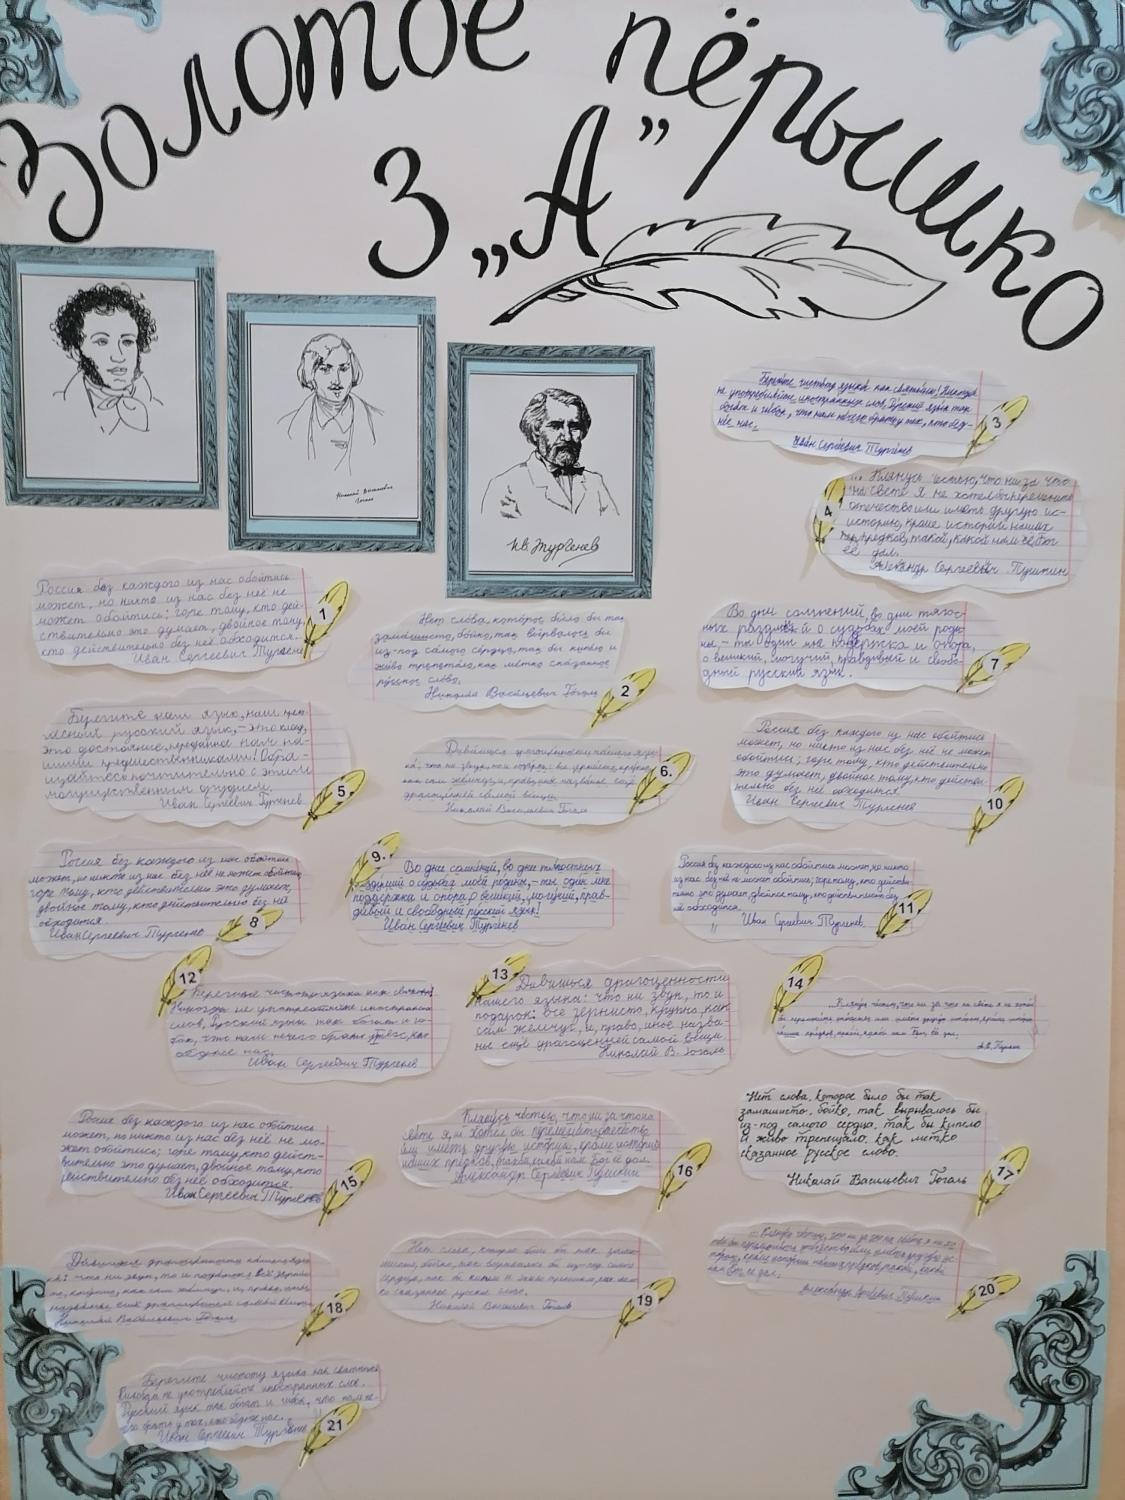 Золотое пёрышко
3 „А”
Николай Васильевич
Гоголь
Ив. Тургенев
Берегите чистоту языка как святыню! Никогда
не употребляйте иностранных слов. Русский язык так
богат и гибок, что нам нечего брать у тех, кто бед-
нее нас.
Иван Сергеевич Тургенев
3
... Клянусь честью, что ни за что
на свете я не хотел бы переменить
отечество или иметь другую ис-
историю, кроме истории наших
предков, такой, какой нам её Бог
её дал.
Александр Сергеевич Пушкин
4
Россия без каждого из нас обойтись
может, но никто из нас без неё не
может обойтись; горе тому, кто дей-
ствительно это думает, двойное тому,
кто действительно без неё обходится.
Иван Сергеевич Тургенев
1
Нет слова, которое было бы так
замашисто, бойко, так вырвалось бы
из-под самого сердца, так бы кипело и
живо трепетало, как метко сказанное
русское слово.
Николай Васильевич Гоголь
2
Во дни сомнений, во дни тягос-
ных раздумий о судьбах моей роди-
ны, – ты один мне поддержка и опора,
о великий, могучий, правдивый и свобо-
дный русский язык.
7
Берегите наш язык, наш прек-
расный русский язык, – это клад,
это достояние, переданное нам на-
шими предшественниками! Обра-
щайтесь почтительно с этим
могущественным орудием.
Иван Сергеевич Тургенев
5
Дивишься драгоценности нашего язы-
ка: что ни звук, то и подарок: всё зернисто, крупно,
как сам жемчуг, и, право, иное название ещё
драгоценней самой вещи.
Николай Васильевич Гоголь
6.
Россия без каждого из нас обойтись
может, но никто из нас без неё не может
обойтись; горе тому, кто действительно
это думает, двойное тому, кто действи-
тельно без неё обходится.
Иван Сергеевич Тургенев
10
Россия без каждого из нас обойтись
может, но никто из нас без неё не может обойтись;
горе тому, кто действительно это думает,
двойное тому, кто действительно без неё
обходится.
Иван Сергеевич Тургенев
8
9.
Во дни сомнений, во дни тягостных
раздумий о судьбах моей родины, – ты один мне
поддержка и опора, о великий, могучий, прав-
дивый и свободный русский язык!
Иван Сергеевич Тургенев
Россия без каждого из нас обойтись может, но никто
из нас без неё не может обойтись; горе тому, кто действи-
тельно это думает, двойное тому, кто действительно без
неё обходится.
Иван Сергеевич Тургенев.
11
12
Берегите чистоту языка как святыню
Никогда не употребляйте иностранных
слов. Русский язык так богат и ги-
бок, что нам нечего брать у тех, кто
беднее нас.
Иван Сергеевич Тургенев
13
Дивишься драгоценности
нашего языка: что ни звук, то и
подарок: всё зернисто, крупно, как
сам жемчуг, и, право, иное назва-
ние ещё драгоценней самой вещи.
Николай В. Гоголь
14
Клянусь честью, что ни за что на свете я не хотел
бы переменить отечество или иметь другую историю, кроме истории
наших предков, такой, какой нам Бог её дал.
А.С. Пушкин
Россия без каждого из нас обойтись
может, но никто из нас без неё не мо-
жет обойтись; горе тому, кто дейст-
вительно это думает, двойное тому, кто
действительно без неё обходится.
Иван Сергеевич Тургенев
15
Клянусь честью, что ни за что на
свете я не хотел бы переменить отечество
или иметь другую историю, кроме истории
наших предков, такой, какой нам Бог её дал.
Александр Сергеевич Пушкин
16
Нет слова, которое было бы так
замашисто, бойко, так вырывалось бы
из-под самого сердца, так бы кипело
и живо трепещало, как метко
сказанное русское слово.
Николай Васильевич Гоголь
17
Дивишься драгоценности нашего язы-
ка: что ни звук, то и подарок: всё зернис-
то, крупно, как сам жемчуг, и, право, иное
название ещё драгоценней самой вещи.
Николай Васильевич Гоголь
18
Нет слова, которое было бы так зама-
шисто, бойко, так вырвалось бы из-под самого
сердца, так бы кипело и живо трепетало, как мет-
ко сказанное русское слово.
Николай Васильевич Гоголь
19
... Клянусь честью, что ни за что на свете я не хо-
тел бы переменить отечество или иметь другую ис-
торию, кроме истории наших предков, такой, какой
нам Бог её дал.
Александр Сергеевич Пушкин
20
Берегите чистоту языка как святыню
Никогда не употребляйте иностранных слов.
Русский язык так богат и гибок, что нам не-
чего брать у тех, кто беднее нас.
Иван Сергеевич Тургенев
21